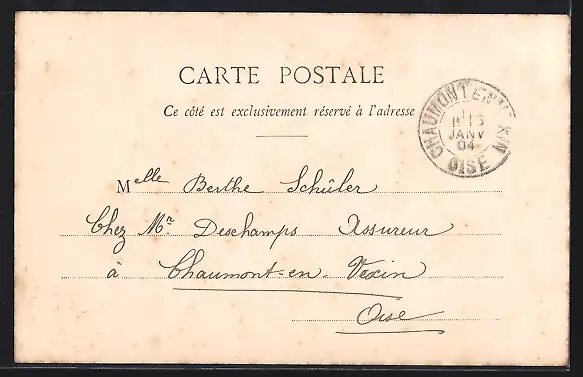 CARTE POSTALE
Ce côté est exclusivement réservé à l'adresse
CHAUMONT EN VEXIN
16
JANV
04
OISE
Melle Berthe Schüler
Chez Mr. Deschamps Assureur
à Chaumont-en-Vexin
Oise